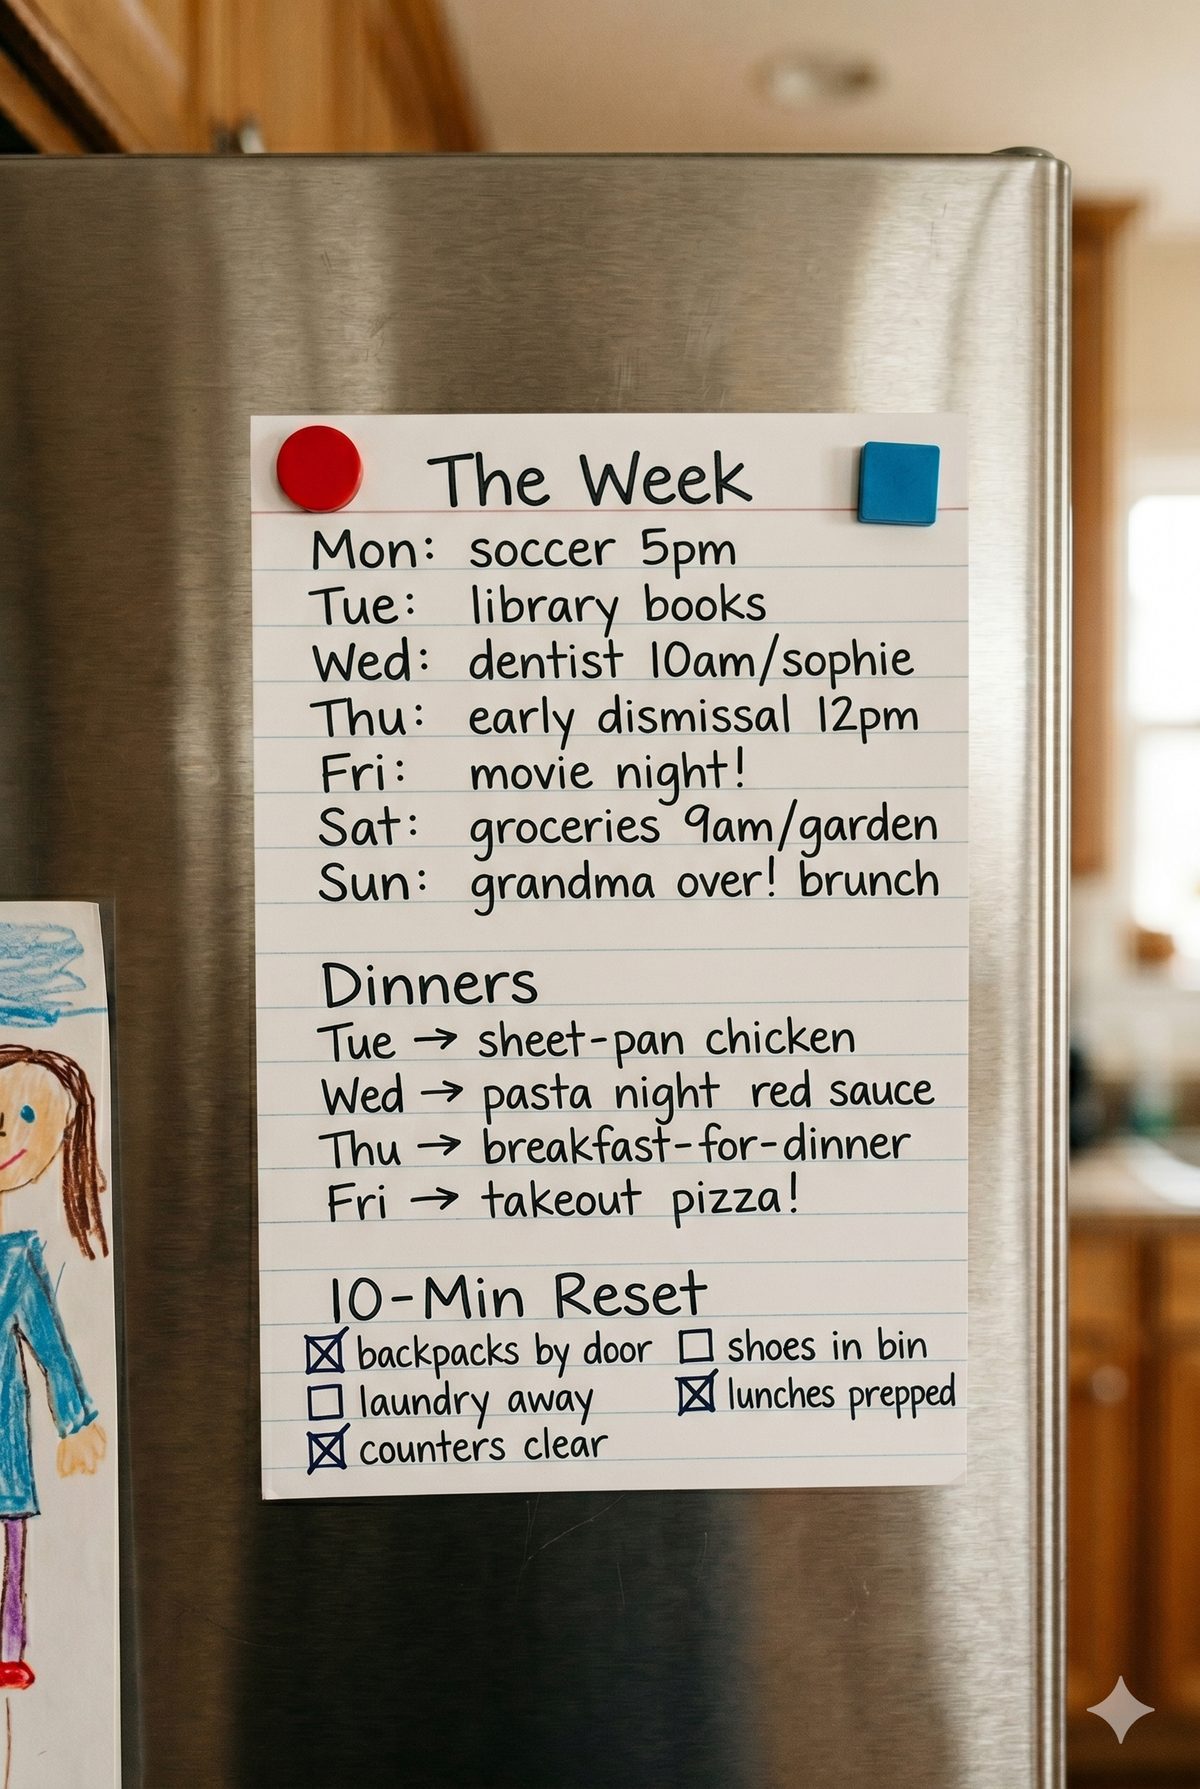 The Week
Mon: soccer 5pm
Tue: library books
Wed: dentist 10am/sophie
Thu: early dismissal 12pm
Fri: movie night!
Sat: groceries 9am/garden
Sun: grandma over! brunch
Dinners
Tue → sheet-pan chicken
Wed → pasta night red sauce
Thu → breakfast-for-dinner
Fri → takeout pizza!
10-Min Reset
☒ backpacks by door ☐ shoes in bin
☐ laundry away ☒ lunches prepped
☒ counters clear